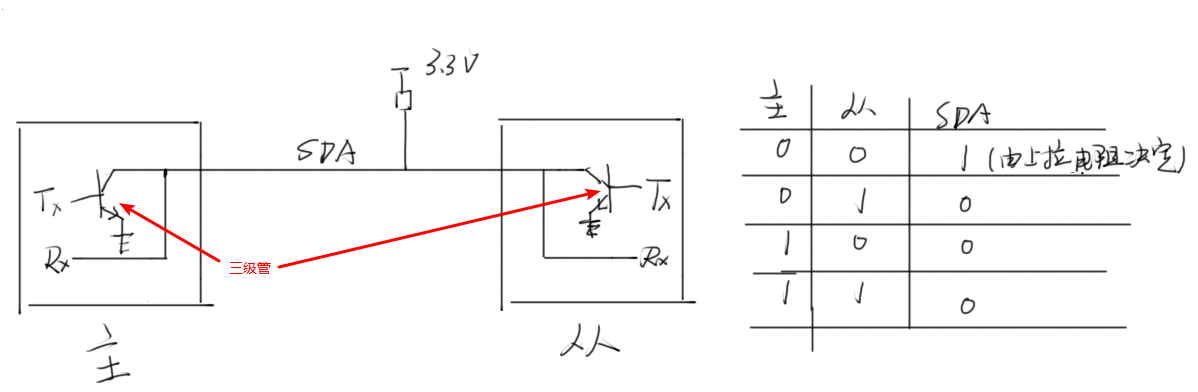 3.3V
SDA
Tx
Rx
三级管
Tx
Rx
主
从
主 从 SDA
0 0 1 (由上拉电阻决定)
0 1 0
1 0 0
1 1 0